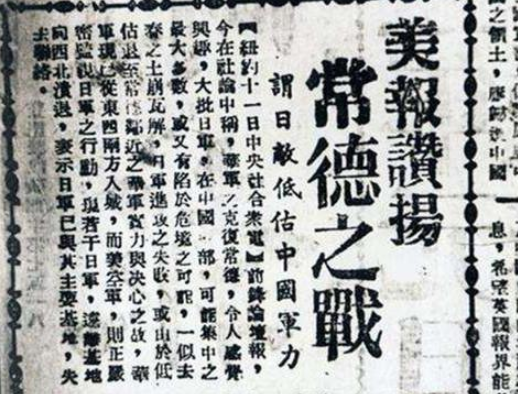 之領土，應歸還中國
息，希望英國報界能
美報讚揚
常德之戰
謂日敵低估中國軍力
【紐約十一日中央社合衆電】前鋒論壇報，
今在社論中稱，華軍之克復常德，令人感覺
興趣，大批日軍，在中國部，可能集中之
最大多數，或又有陷於危境之可能，一似去
春之土崩瓦解，日軍進攻之失敗，或由於低
估退至常德鄰近之華軍實力與決心之故，華
軍現已從東西兩方入城，而美空軍，則正嚴
密監視日軍之行動，與若干日軍，遠離基地
向西北潰退，表示日軍已與其主要基地，失
去聯絡。